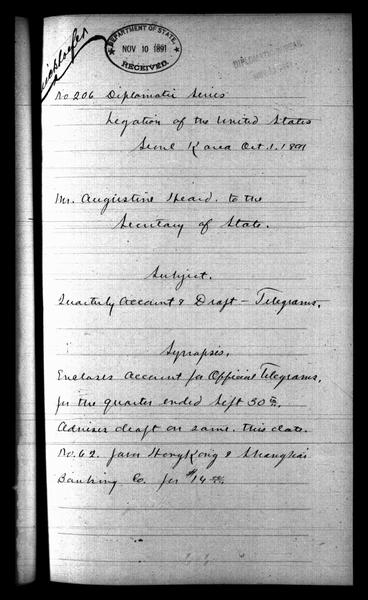 DEPARTMENT OF STATE,
NOV 10 1891
RECEIVED.
No 206 Diplomatic Series
Legation of the United States
Seoul Korea Oct. 1. 1891
Mr. Augustine Heard. to the
Secretary of State.
Subject.
Quarterly Account & Draft – Telegrams.
Synopsis.
Encloses Account for Official Telegrams,
for the quarter ended Sept 30th.
Advises draft on same. this date.
No. 62. favor HongKong & Shanghai
Banking Co. for $14